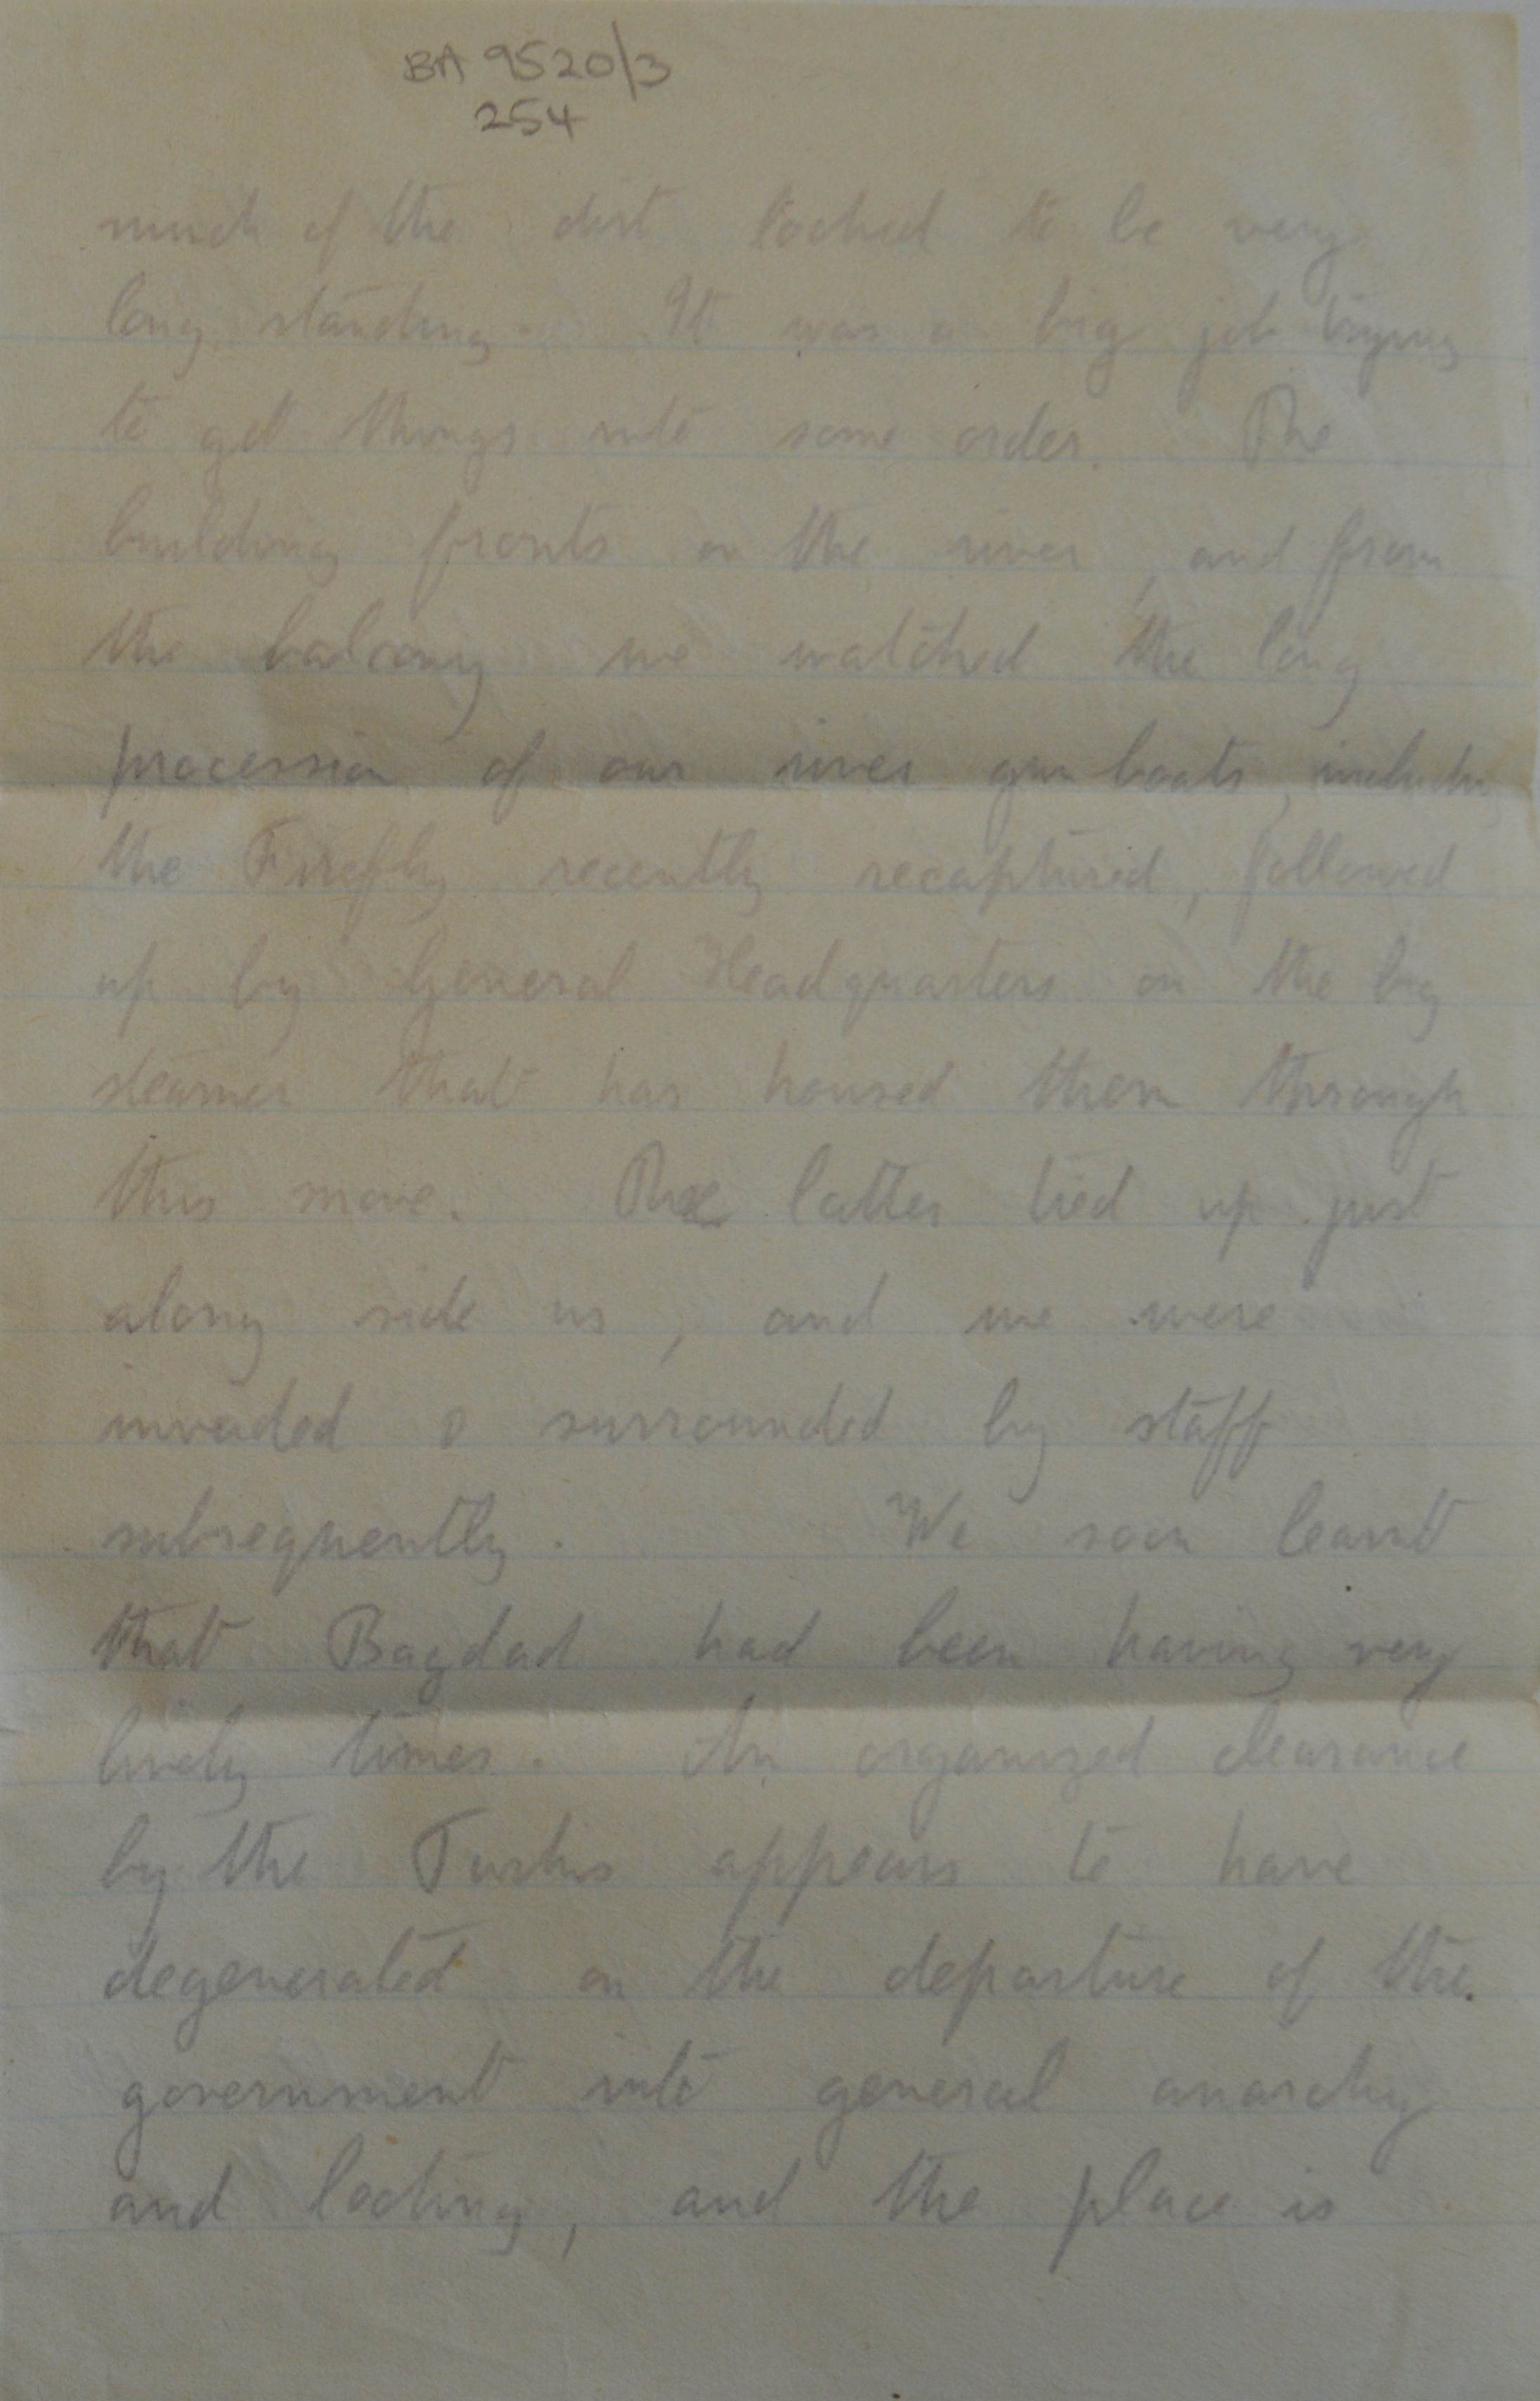 BA 9520/3
254
much of the dirt looked to be very
long standing. It was a big job trying
to get things into some order. The
building fronts on the river, and from
the balcony we watched the long
procession of our river gun boats, including
the Firefly recently recaptured, followed
up by General Headquarters on the big
steamer that has housed them through
this move. The latter tied up just
along side us, and we were
invaded & surrounded by staff
subsequently. We soon learnt
that Bagdad had been having very
lively times. An organized clearance
by the Turks appears to have
degenerated on the departure of the
government into general anarchy
and looting, and the place is